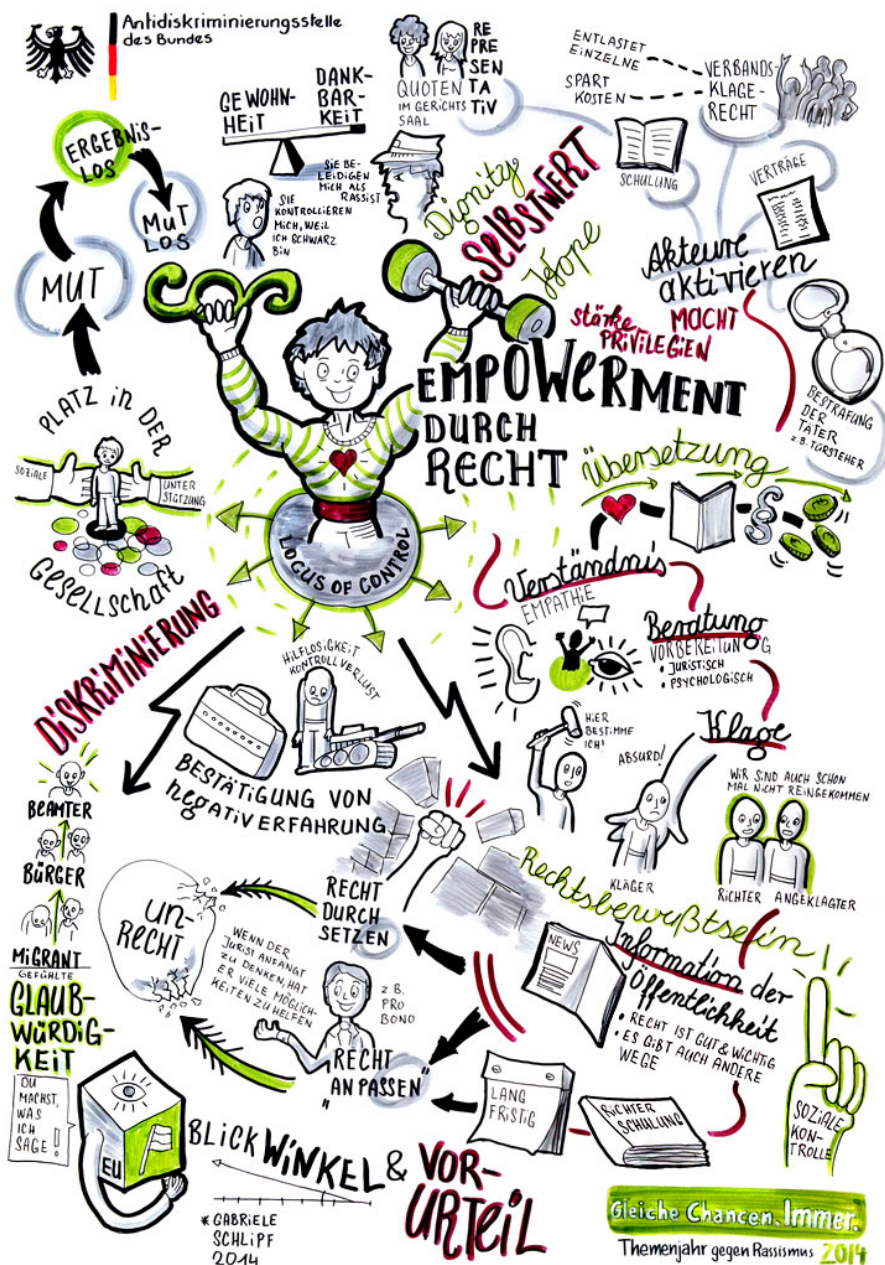 Antidiskriminierungsstelle
des Bundes
ERGEBNIS-
LOS
MUT
LOS
MUT
GEWOHN-
HEIT
DANK-
BAR-
KEIT
SIE
KONTROLLIEREN
MICH, WEIL
ICH SCHWARZ
BIN
SIE BE-
LEIDIGEN
MICH ALS
RASSIST
QUOTEN
IM GERICHTS
SAAL
RE
PRE
SEN
TA
TIV
ENTLASTET
EINZELNE
SPART
KOSTEN
VERBANDS-
KLAGE-
RECHT
SCHULUNG
VERTRÄGE
Dignity
SELBSTWERT
Hope
Akteure
aktivieren
MACHT
stärke
PRIVILEGIEN
BESTRAFUNG
DER
TÄTER
z.B. TÜRSTEHER
EMPOWERMENT
DURCH
RECHT
PLATZ IN DER
SOZIALE
UNTER
STÜTZUNG
GESELLSCHAFT
LOCUS OF CONTROL
Übersetzung
§
Verständnis
EMPATHIE
Beratung
VORBEREITUNG
• JURISTISCH
• PSYCHOLOGISCH
Klage
HIER
BESTIMME
ICH!
ABSURD!
KLÄGER
WIR SIND AUCH SCHON
MAL NICHT REINGEKOMMEN
RICHTER ANGEKLAGTER
DISKRIMINIERUNG
HILFLOSIGKEIT
KONTROLLVERLUST
BESTÄTIGUNG VON
negativ ERFAHRUNG
BEAMTER
BÜRGER
MIGRANT
GEFÜHLTE
GLAUB-
WÜRDIG-
KEIT
UN-
RECHT
RECHT
DURCH
SETZEN
WENN DER
JURIST ANFÄNGT
ZU DENKEN, HAT
ER VIELE MÖGLICH-
KEITEN ZU HELFEN
z.B.
PRO
BONO
"RECHT
ANPASSEN"
Rechtsbewußtsein
NEWS
Information der
Öffentlichkeit
• RECHT IST GUT & WICHTIG
• ES GIBT AUCH ANDERE
WEGE
SOZIALE
KON-
TROLLE
LANG
FRISTIG
RICHTER
SCHULUNG
DU
MACHST,
WAS
ICH
SAGE!
EU
BLICKWINKEL & VOR-
URTEIL
* GABRIELE
SCHLIPF
2014
Gleiche Chancen. Immer.
Themenjahr gegen Rassismus 2014